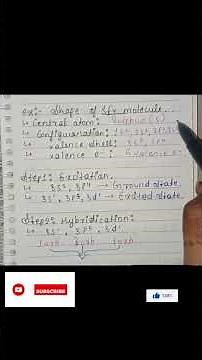 ex:- Shape of SF4 molecule...
↳ Central atom: Sulphur (S)
↳ Configuration: 1s², 2s²,
↳ valence shell: 3s², 3p⁴
↳ valence e⁻: 6 valence e⁻
Step1: Excitation.
↳ 3s², 3p⁴ → Ground state.
↳ 3s², 3p³, 3d¹ → Excited state.
Step2: Hybridication:
↳ 3s², 3p³, 3d¹
1 orb 3 orb 1 orb
SUBSCRIBE